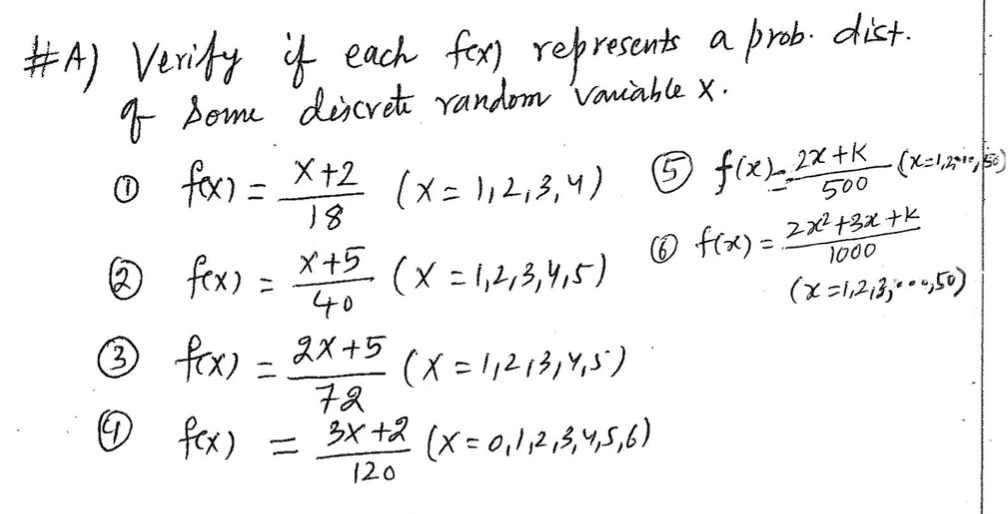 #A) Verify if each f(x) represents a prob. dist.
of some discrete random variable X.
① f(x) = X+2/18 (X = 1,2,3,4)
② f(x) = X+5/40 (X = 1,2,3,4,5)
③ f(x) = 2X+5/72 (X = 1,2,3,4,5)
④ f(x) = 3X+2/120 (X = 0,1,2,3,4,5,6)
⑤ f(x) = 2x+K/500 (x=1,2,...,50)
⑥ f(x) = 2x²+3x+K/1000
(x=1,2,3,...,50)